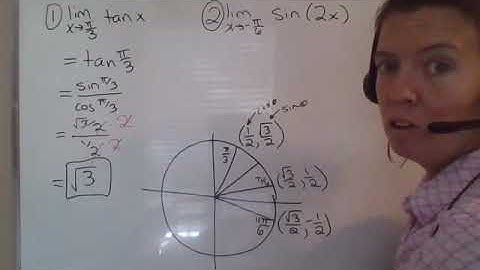 ① lim x→π/3 tan x
= tan π/3
= sin π/3 / cos π/3
= √3/2 / 1/2 · 2 / 2
= √3
② lim x→-π/6 sin (2x)
cosθ sinθ
(1/2, √3/2)
π/3
π/6 (√3/2, 1/2)
11π/6 (√3/2, -1/2)